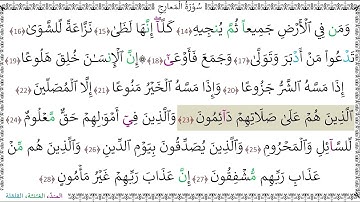 سُورَةُ المَعَارِجِ
وَمَن فِي ٱلْأَرْضِ جَمِيعاً ثُمَّ يُنجِيهِ ﴿14﴾ كَلَّآ إِنَّهَا لَظَىٰ ﴿15﴾ نَزَّاعَةً لِّلشَّوَىٰ ﴿16﴾
تَدْعُواْ مَنْ أَدْبَرَ وَتَوَلَّىٰ ﴿17﴾ وَجَمَعَ فَأَوْعَىٰٓ ﴿18﴾ ۞ إِنَّ ٱلْإِنسَـٰنَ خُلِقَ هَلُوعًا ﴿19﴾
إِذَا مَسَّهُ ٱلشَّرُّ جَزُوعًا ﴿20﴾ وَإِذَا مَسَّهُ ٱلْخَيْرُ مَنُوعًا ﴿21﴾ إِلَّا ٱلْمُصَلِّينَ ﴿22﴾
ٱلَّذِينَ هُمْ عَلَىٰ صَلَاتِهِمْ دَآئِمُونَ ﴿23﴾ وَٱلَّذِينَ فِيٓ أَمْوَٰلِهِمْ حَقٌّ مَّعْلُومٌ ﴿24﴾
لِّلسَّآئِلِ وَٱلْمَحْرُومِ ﴿25﴾ وَٱلَّذِينَ يُصَدِّقُونَ بِيَوْمِ ٱلدِّينِ ﴿26﴾ وَٱلَّذِينَ هُم مِّنْ
عَذَابِ رَبِّهِم مُّشْفِقُونَ ﴿27﴾ إِنَّ عَذَابَ رَبِّهِمْ غَيْرُ مَأْمُونٍ ﴿28﴾
المدّ، الغنّة، القلقلة